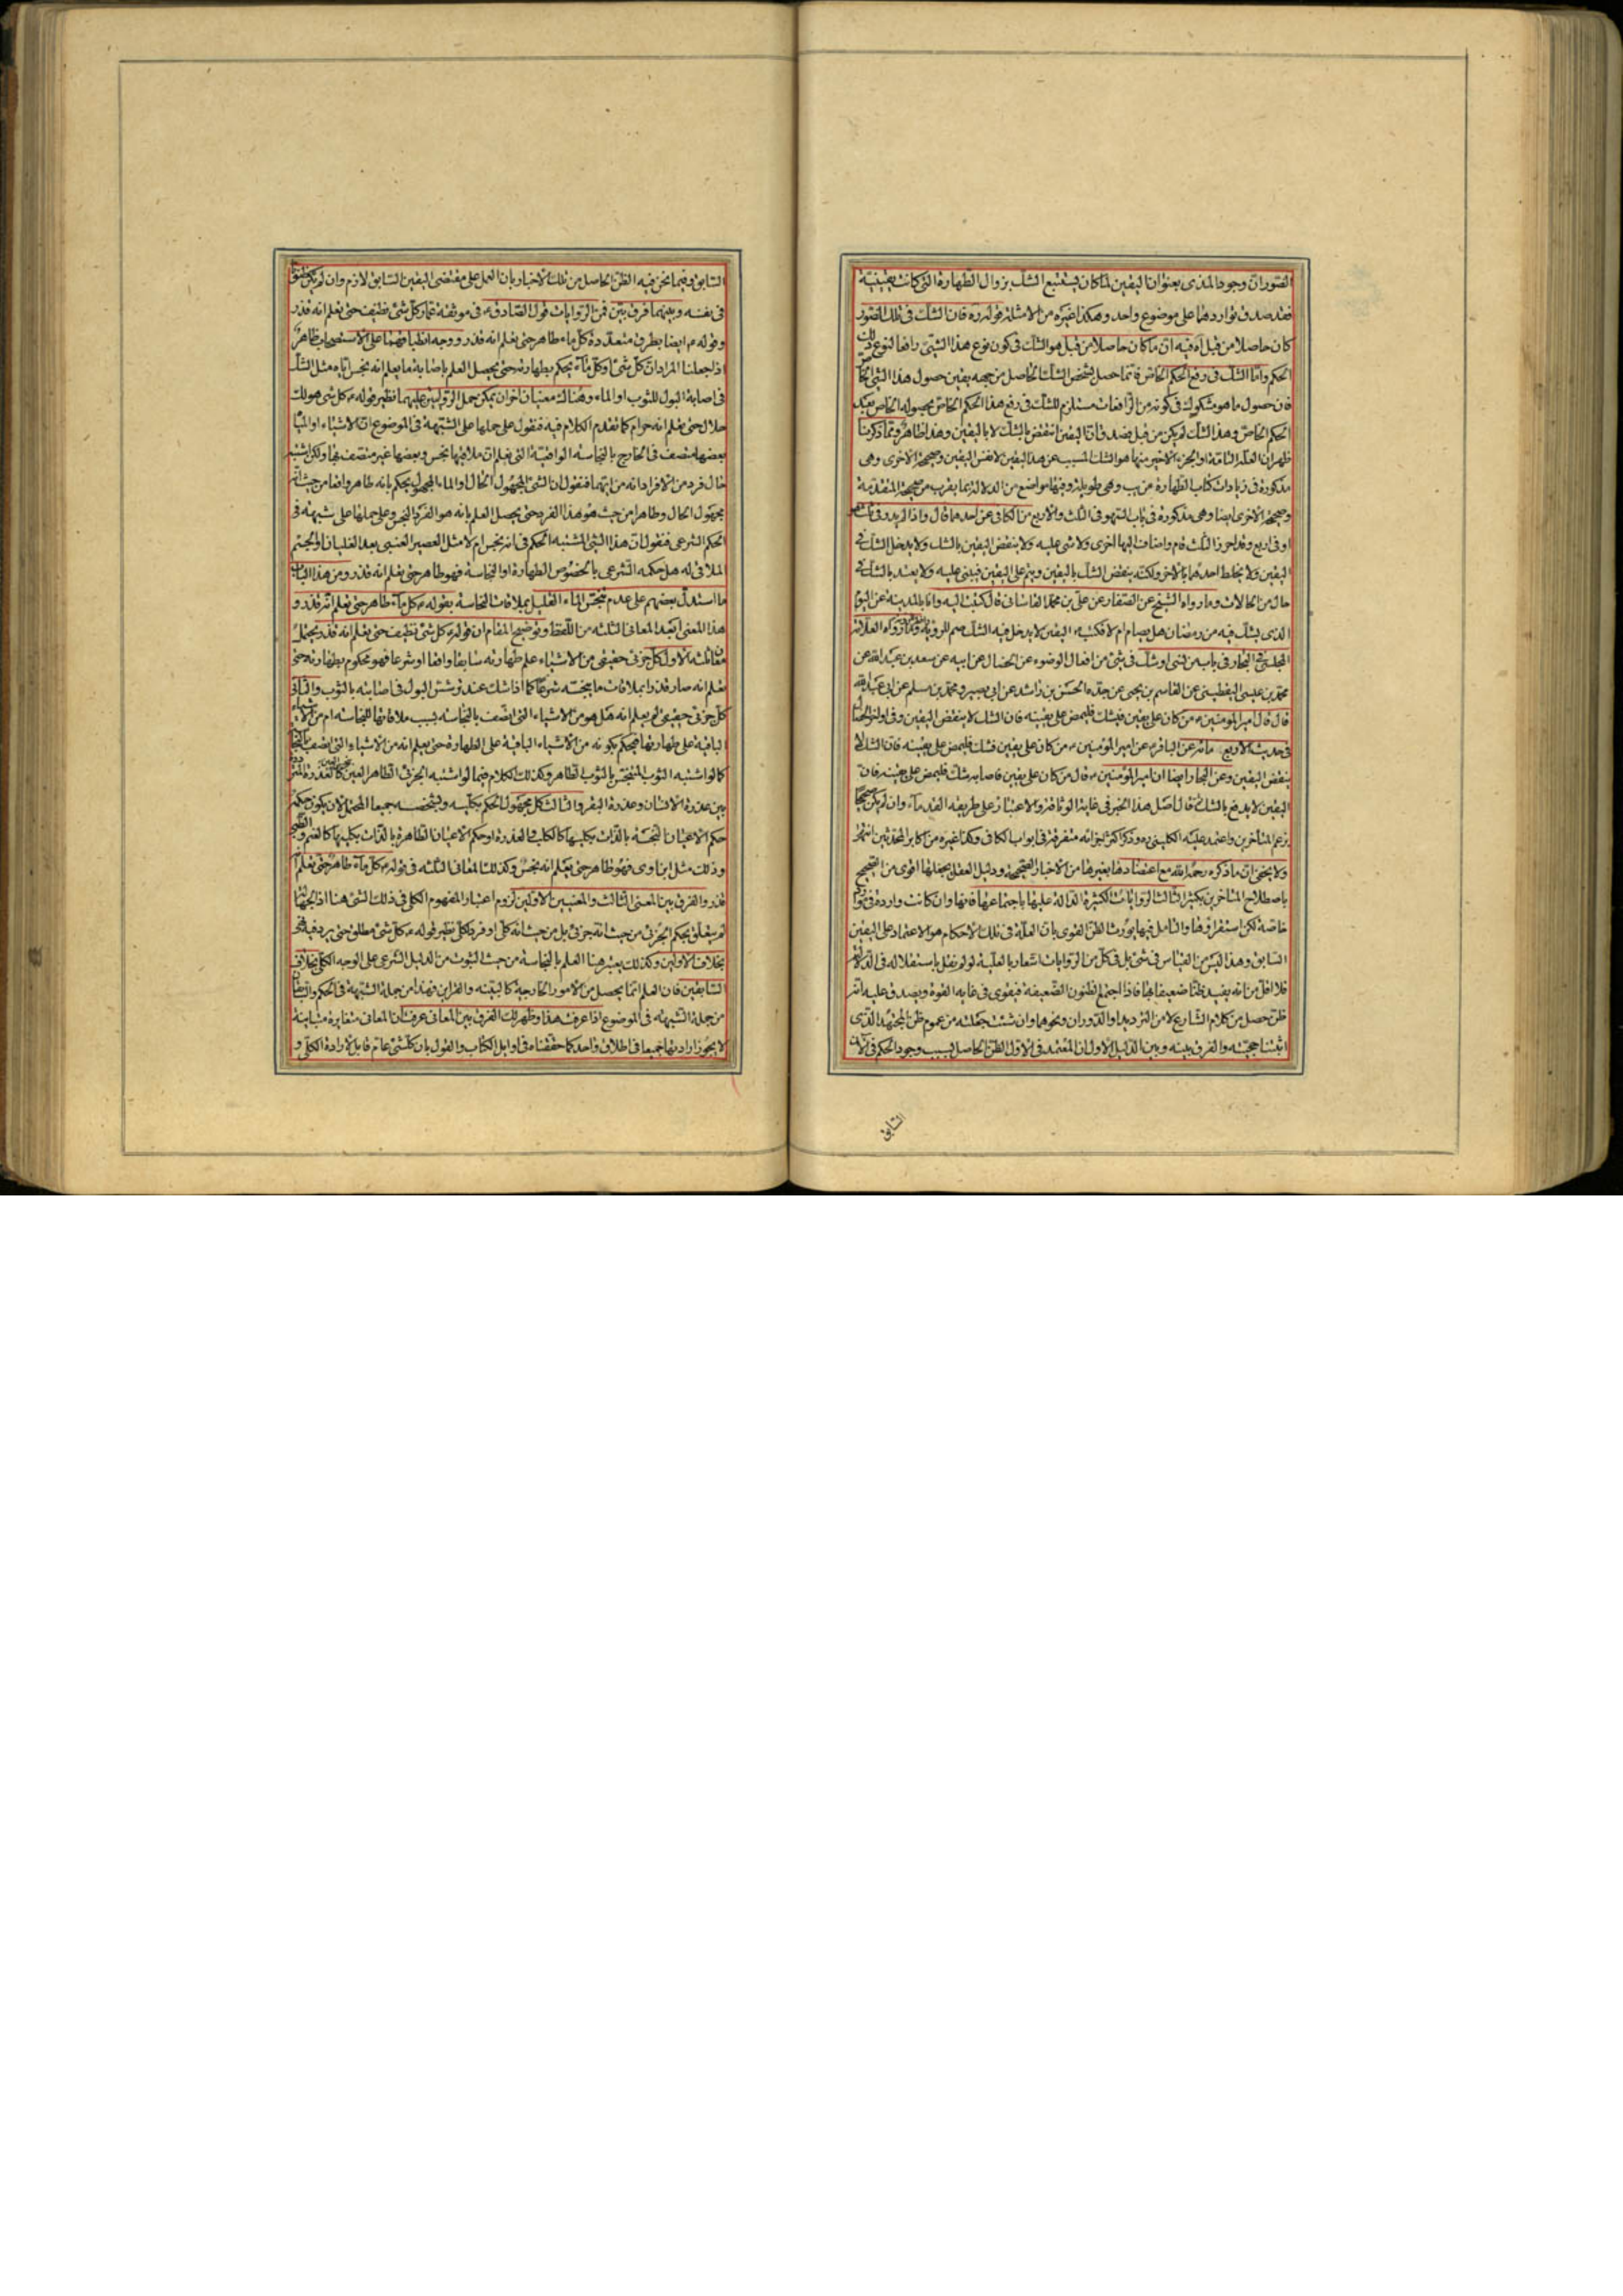 الصورات وجود المذى بعنوان اليقين لما كان يستتبع الشك بزوال الطهارة التى كانت يقينية
فقد صدق تواردهما على موضوع واحد وهكذا غيره من الامثلة قوله ره فان الشك فى تلك الصور
كان حاصلا من قبل اه فيه ان ما كان حاصلا من قبل هو الشك فى كون نوع هذا الشئ رافعا لنوع ذلك
الحكم واما الشك فى رفع الحكم الخاص فانما حصل لشخص الشك الحاصل من جهة يقين حصول هذا الشئ
فان حصول ما هو مشكوك فى كونه من الرافعات مستلزم للشك فى رفع هذا الحكم الخاص بحصوله الخاص بعد
الحكم الخاص وهذا الشك لم يكن من قبل يصدق ان اليقين انتقض بالشك لا باليقين وهذا ظاهر ومما ذكرنا
ظهر ان العلة التامة او الجزء الاخير منها هو الشك المسبب عن هذا اليقين لا نفس اليقين وصحيحة الاخرى وهى
مذكورة فى زيادات كتاب الطهارة من يب وهى طويلة وفيها مواضع من الدلالة بما يقرب من صحيحة المتقدمة
وصحيحة الاخرى ايضا وهى مذكورة فى باب السهو فى الثلث والاربع من الكافى عن احدهما قال واذا لم يدر فى ثلث هو
او فى اربع وقد احرز الثلث قام واضاف اليها اخرى ولا شئ عليه ولا ينقض اليقين بالشك ولا يدخل الشك فى
اليقين ولا يخلط احدهما بالاخر ولكنه ينقض الشك باليقين ويتم على اليقين فيبنى عليه ولا يعتد بالشك فى
حال من الحالات وما رواه الشيخ عن الصفار عن على بن محمد القاسانى قال كتبت اليه وانا بالمدينة عن اليوم
الذى يشك فيه من رمضان هل يصام ام لا فكتب اليقين لا يدخل فيه الشك صم للرؤية وافطر للرؤية وما رواه العلامة
المجلسى فى البحار فى باب من نسى او شك فى شئ من افعال الوضوء عن الخصال عن ابيه عن سعد بن عبد الله عن
محمد بن عيسى اليقطينى عن القاسم بن يحيى عن جده الحسن بن راشد عن ابى بصير ومحمد بن مسلم عن ابى عبد الله
قال قال امير المؤمنين من كان على يقين فشك فليمض على يقينه فان الشك لا ينقض اليقين وفى اواخر الخصال
فى حديث الاربع مائة عن الباقر عن امير المؤمنين من كان على يقين فشك فليمض على يقينه فان الشك لا
ينقض اليقين وعن البحار ايضا ان امير المؤمنين قال من كان على يقين فاصابه شك فليمض على يقينه فان
اليقين لا يدفع بالشك قال اصل هذا الخبر فى غاية الوثاقة والاعتبار على طريقة القدماء وان لم يكن صحيحا
بزعم المتاخرين واعتمد عليه الكلينى ره وذكر اكثر اجزائه متفرقة فى ابواب الكافى وكذا غيره من اكابر المحدثين انتهى
ولا يخفى ان ما ذكره رحمه الله مع اعتضادها بغيرها من الاخبار الصحيحة ودليل العقل يجعلها اقوى من الصحيح
باصطلاح المتاخرين بكثير الثالث الروايات الكثيرة الدالة عليها باجتماعها فانها وان كانت واردة فى موارد
خاصة لكن استقراؤها والتامل فيها يورث الظن القوى بان العلة فى تلك الاحكام هو الاعتماد على اليقين
السابق وهذا ليس من القياس فى شئ بل فى كل من الروايات اشعار بالعلية لو لم نقل باستقلاله فى الدلالة
فلا اقل من انه يفيد ظنا ضعيفا بها فاذا اجتمع الظنون الضعيفة فيقوى فى غاية القوة ويصدق عليه انه
ظن حصل من كلام الشارع لا من الترديد والدوران ونحوهما وان شئت جعلته من عموم ظن المجتهد الذى
اثبتنا حجيته والفرق بينه وبين الدليل الاول ان المعتمد فى الاول الظن الحاصل بسبب وجود الحكم فى الان
السابق
السابق وفيما نحن فيه الظن الحاصل من تلك الاخبار بان العمل على مقتضى اليقين السابق لازم وان لم يكن مظنونا
فى نفسه وبينهما فرق بين فمن الروايات قول الصادق فى موثقة عمار كل شئ نظيف حتى تعلم انه قذر
وقوله ايضا بطرق متعددة كل ماء طاهر حتى تعلم انه قذر ووجه انطباقهما على الاستصحاب ظاهر
اذا جعلنا المراد ان كل شئ او كل ماء يحكم بطهارته حتى يحصل العلم باصابة ما يعلم انه نجس اياه مثل الشك
فى اصابة البول للثوب او الماء وهناك معنيان اخران يمكن حمل الروايتين عليهما نظير قوله كل شئ هو لك
حلال حتى تعلم انه حرام كما تقدم الكلام فيه فنقول على حملها على الشبهة فى الموضوع ان الاشياء او المياه
بعضها متصف فى الخارج بالنجاسة الواقعية التى نعلم ان ملاقيها نجس وبعضها غير متصف بها ولكن اشتبه
حال فرد من الافراد انه من ايهما فنقول ان الشئ المجهول الحال والماء المجهول يحكم بانه طاهر واقعا من حيث انه
مجهول الحال وظاهرا من حيث هو هذا الفرد حتى يحصل العلم بانه هو الفرد النجس وعلى حملها على شبهته فى
الحكم الشرعى فنقول ان هذا الشئ المشتبه الحكم فى انه نجس ام لا مثل العصير العنبى بعد الغليان او الجسم
الملاقى له هل حكمه الشرعى بالخصوص الطهارة او النجاسة فهو طاهر حتى تعلم انه قذر ومن هذا الباب
ما استدل بعضهم على عدم تنجس الماء القليل بملاقات النجاسة بقوله كل ماء طاهر حتى تعلم انه قذر و
هذا المعنى ابعد المعانى الثلثة من اللفظ وتوضيح المقام ان قوله كل شئ نظيف حتى تعلم انه قذر يحتمل
معان ثلثة الاول كل جزئى حقيقى من الاشياء علم طهارته سابقا واقعا او شرعا فهو محكوم بطهارته حتى
تعلم انه صار قذرا بملاقات ما ينجسه شرعا كما اذا شك عند ترشش البول فى اصابته بالثوب والثانى
كل جزئى حقيقى لم يعلم انه هل هو من الاشياء التى اتصف بالنجاسة بسبب ملاقاتها للنجاسة ام من الاشياء
الباقية على طهارتها فيحكم بكونه من الاشياء الباقية على الطهارة حتى يعلم انه من الاشياء التى اتصف بالنجاسة
كما لو اشتبه الثوب المتنجس بالثوب الطاهر وكذلك الكلام فيما لو اشتبه الجزئى الطاهر العين
بين عذرة الانسان وعذرة البقر والثالث كل مجهول الحكم بكليته وبشخصه جميعا المحتمل لان يكون حكمه
حكم الاعيان النجسة بالذات بكليتها كالكلب والعذرة او حكم الاعيان الطاهرة بالذات بكليتها كالغنم
وذلك مثل ابن اوى فهو طاهر حتى يعلم انه نجس وكذلك المعانى الثلثة فى قوله كل ماء طاهر حتى تعلم انه
قذر والفرق بين المعنى الثالث والمعنيين الاولين لزوم اعتبار المفهوم الكلى فى ذلك الشئ هنا اذ الجهالة
لم يتعلق بحكم الجزئى من حيث انه جزئى بل من حيث انه كلى او فرد لكلى نظير قوله كل شئ مطلق حتى يرد فيه نهى
بخلاف الاولين وكذلك يعتبر هنا العلم بالنجاسة من حيث الثبوت من الدليل الشرعى على الوجه الكلى بخلاف
السابقين فان العلم انما يحصل من الامور الخارجية كالبينة والقراين فهذا من جملة الشبهة فى الحكم والسابقان
من جملة الشبهة فى الموضوع اذا عرفت هذا وظهر لك الفرق بين المعانى عرفت ان المعانى متغايرة متباينة
لا يجوز ارادتها جميعا فى اطلاق واحد كما حققناه فى اوايل الكتاب والقول بان كل شئ عام قابل لارادة الكلى و